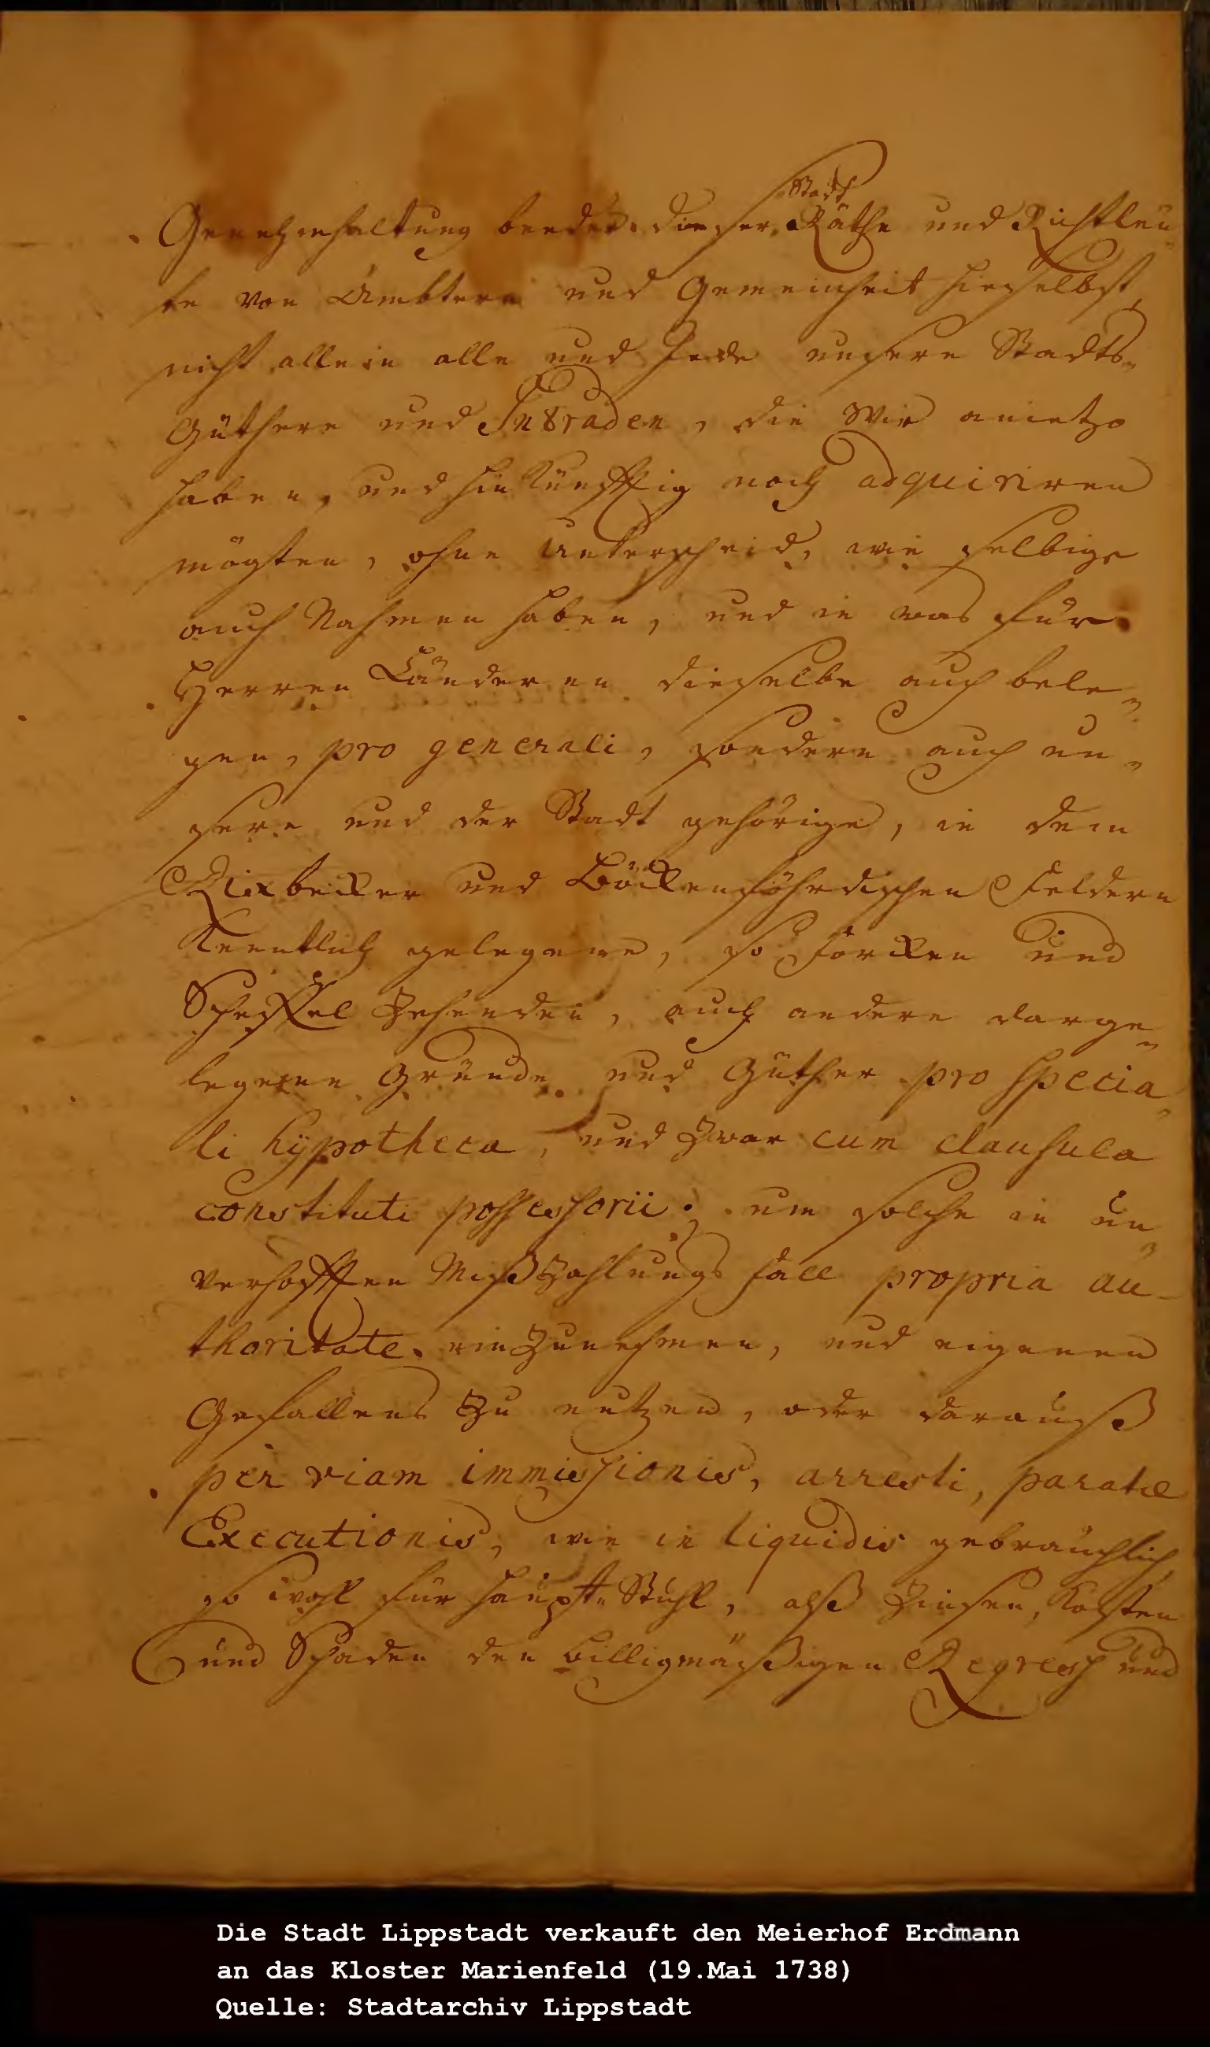 Genehmhaltung beeder dieser Stadt Räthe und Richtleu-
te von Ämbteren und Gemeinheit hieselbst,
nicht allein alle und Jede unsere Stadts-
Güthere und Intraden, die Wir anietzo
haben, und hin künfftig noch adquiriren
mögten, ohne Unterscheid, wie selbige
auch Nahmen haben, und in was für
Herren Länderen dieselbe auch bele-
gen, pro generali, sondern auch un-
sere und der Stadt gehörige, in dem
Rixbeiker und Böikenföhrdischen Feldern
Kenntlich gelegene, so Forcken und
Scheffel Zehenden, auch andere darge-
legene Gründe und Güther pro specia-
li hÿpotheca, und zwar cum clausula
constituti possessorii; um solche in un-
verhofften Mißzahlungs fall propria au-
thoritate einzunehmen, und eigenen
Gefallens zu nutzen, oder darauß
per viam immissionis, arresti, paratæ
Executionis, wie in liquidis gebräuchlich,
so wohl für haupt-Stuhl, alß Zinsen, Kosten
und Schaden den billigmäßigen Regress und
Die Stadt Lippstadt verkauft den Meierhof Erdmann
an das Kloster Marienfeld (19.Mai 1738)
Quelle: Stadtarchiv Lippstadt